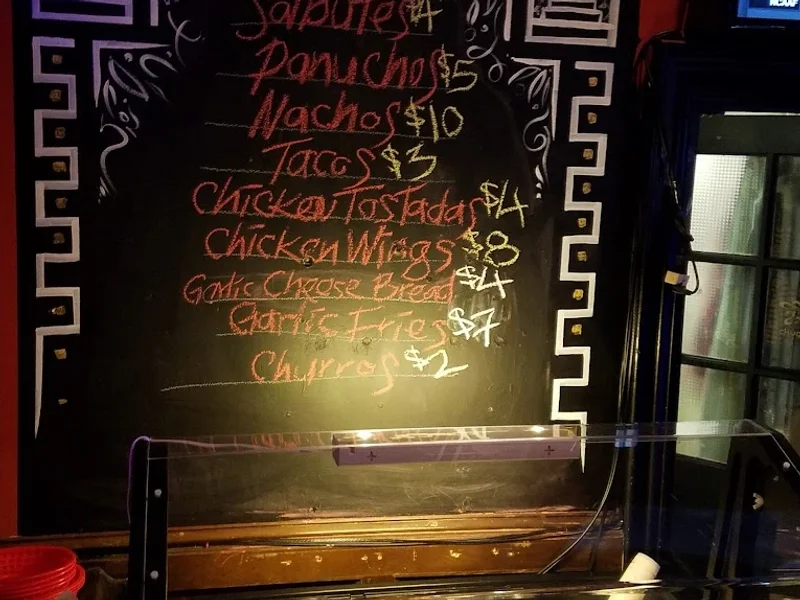 Salbutes $4
Panuchos $5
Nachos $10
Tacos $3
Chicken Tostadas $4
Chicken Wings $8
Garlic Cheese Bread $4
Garlic Fries $7
Churros $2